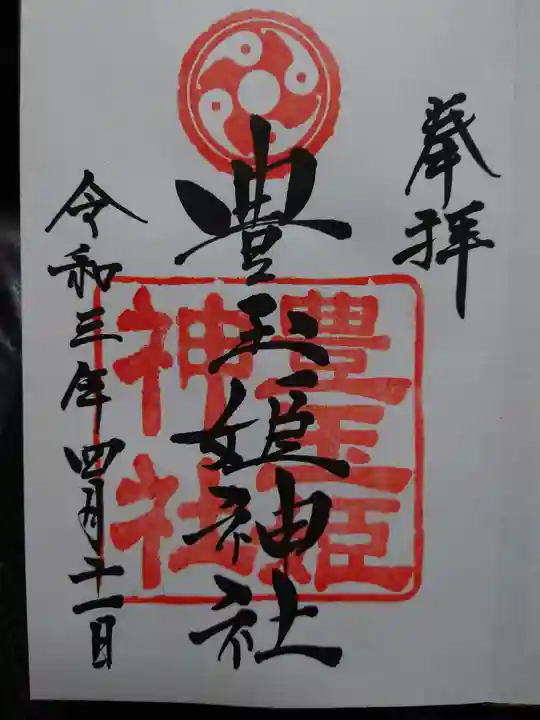 奉拝
豊玉姫神社
豊玉姫
神社
令和三年四月十一日